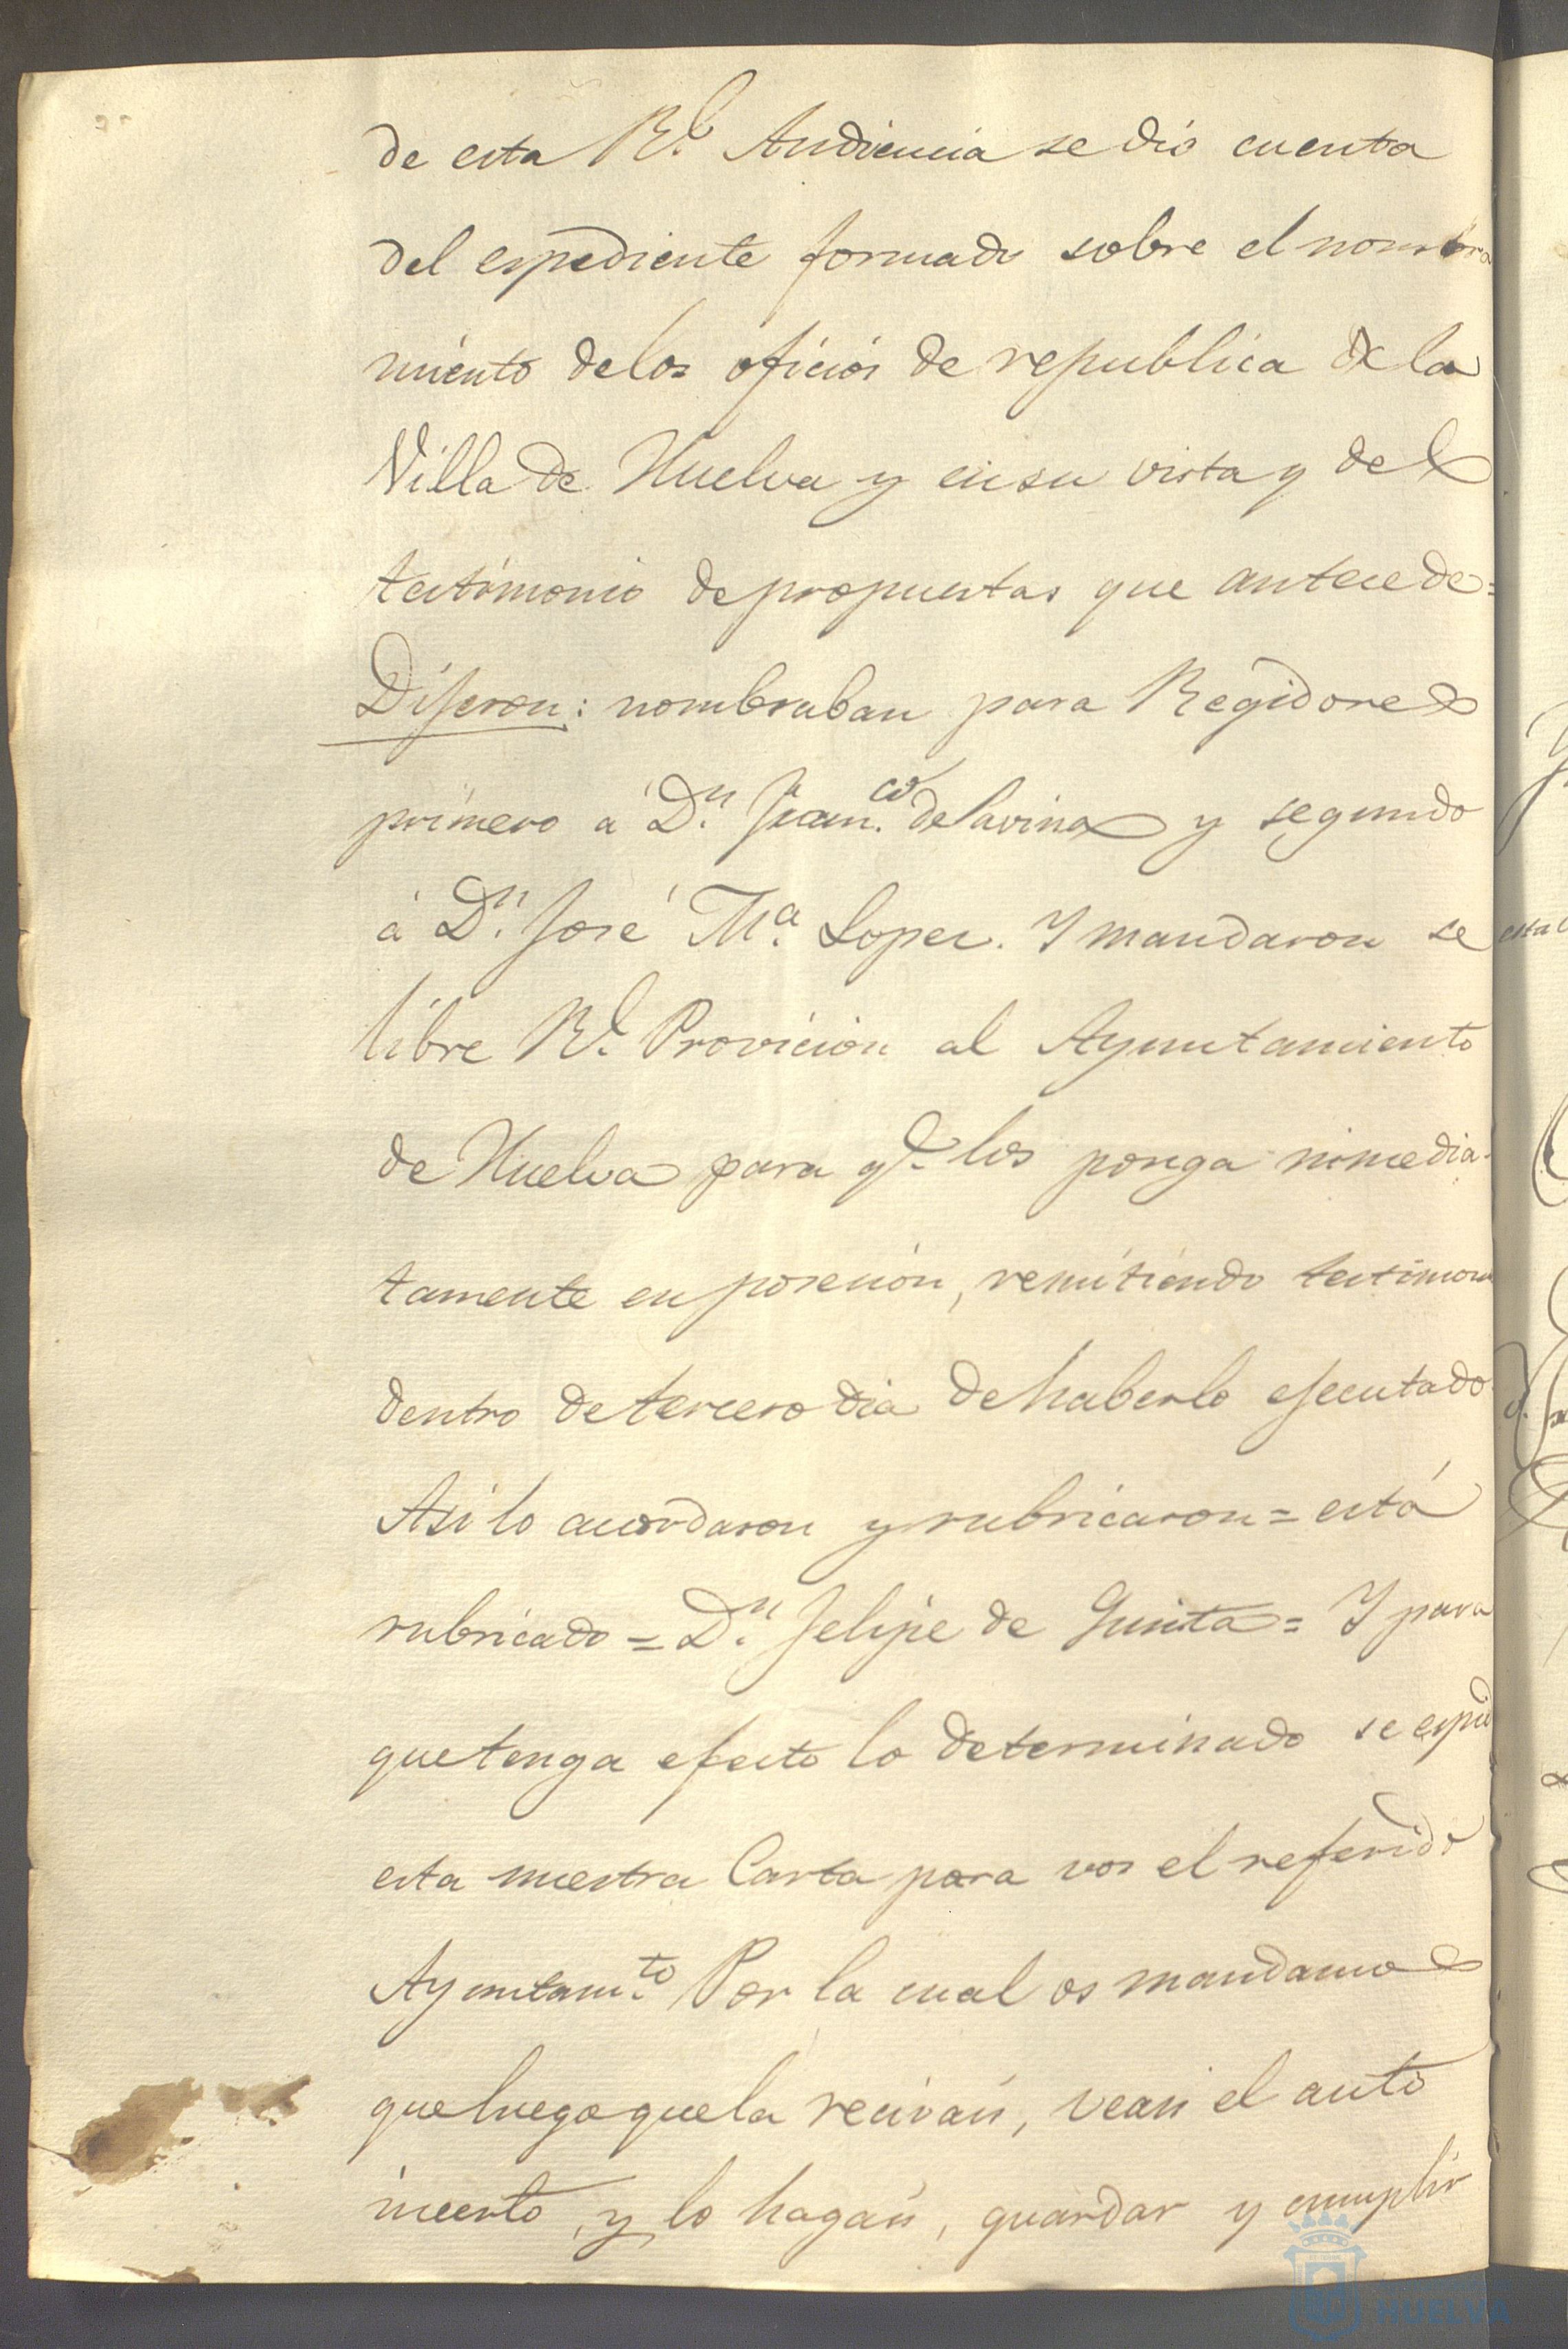 de esta Rl. Audiencia se dió cuenta
del espediente formado sobre el nombra
miento delos oficios de republica de la
Villa de Huelva y ensu vista y del
testimonio depropuestas que antecede=
Dijeron: nombraban para Regidores
primero á Dn. Franco. de Lavina y segundo
á Dn. José Ma. Lopez. Y mandaron se
libre Rl. Provicion al Ayuntamiento
de Huelva para qe. los ponga inmedia-
tamente en posesión, remitiendo testimonio
dentro detercero dia dehaberlo ejecutado
Asi lo acordaron y rubricaron= está
rubricado= Dn. Felipe de = Y para
quetenga efecto lo determinado se espid
esta nuestra Carta para vos el referido
Ayuntamto. Por la cual os mandamos
queluegoquela recivais, veais el auto
inserto, y lo hagais, guardar y cumplir
HUELVA